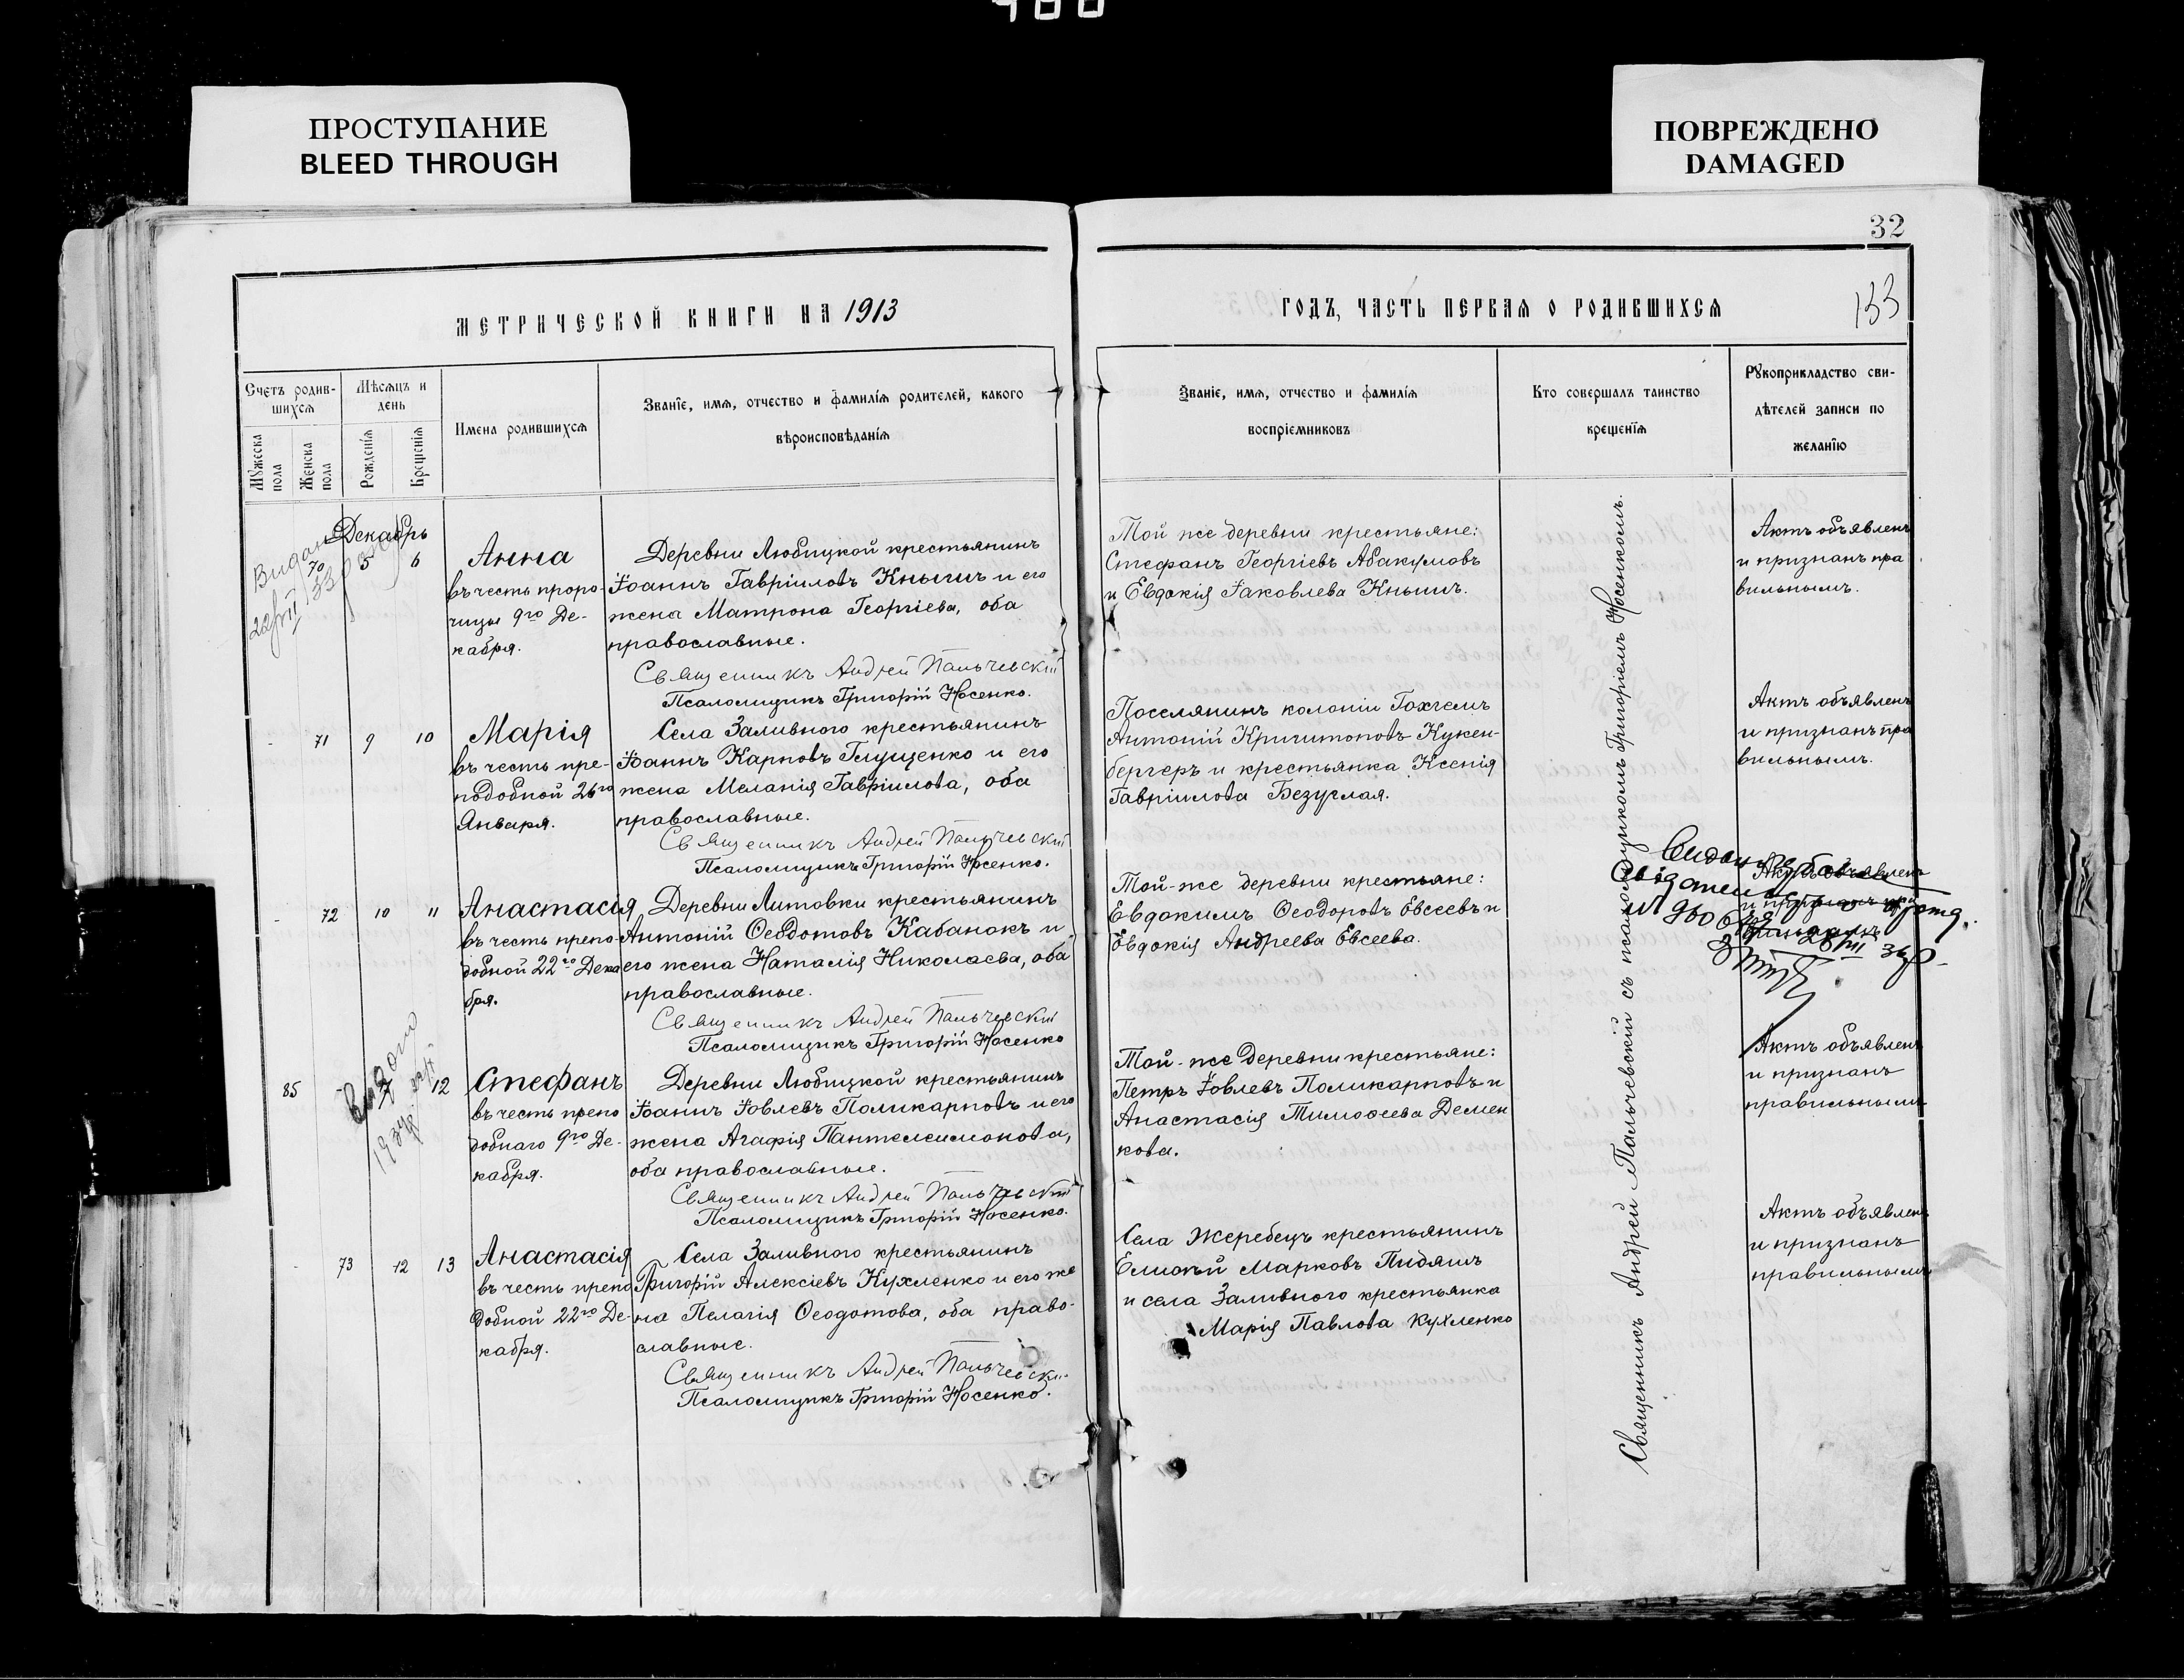 ПРОСТУПАНИЕ
BLEED THROUGH
ПОВРЕЖДЕНО
DAMAGED
32
133
МЕТРИЧЕСКОЙ КНИГИ НА 1913
ГОДЪ, ЧАСТЬ ПЕРВАЯ О РОДИВШИХСЯ
Счетъ родив-
шихся
Мѣсяцъ и
день
Мужеска
пола
Женска
пола
Рожденія
Крещенія
Имена родившихся
Званіе, имя, отчество и фамилія родителей, какого
вѣроисповѣданія
Званіе, имя, отчество и фамилія
воспріемниковъ
Кто совершалъ таинство
крещенія
Рукоприкладство сви-
дѣтелей записи по
желанію
Декабрь
70 5 6
Анна
въ честь проро-
чицы 9го Де-
кабря.
Деревни Любицкой крестьянинъ
Іоаннъ Гавріиловъ Кнышъ и его
жена Матрона Георгіева, оба
православные.
Священникъ Андрей Пальчевскій
Псаломщикъ Григорій Носенко.
Той же деревни крестьяне:
Стефанъ Георгіевъ Абакумовъ
и Евдокія Іаковлева Кнышъ.
Актъ объявленъ
и признанъ пра
вильнымъ.
- 71 9 10
Марія
въ честь пре-
подобной 26го
Января.
Села Заливного крестьянинъ
Іоаннъ Карповъ Глущенко и его
жена Меланія Гавріилова, оба
православные.
Священникъ Андрей Пальчевскій
Псаломщикъ Григорій Носенко.
Поселянинъ колоніи Гохгемъ
Антоній Кукен-
бергеръ и крестьянка Ксенія
Гавріилова Безуглая.
Актъ объявленъ
и признанъ пра
вильнымъ.
- 72 10 11
Анастасія
въ честь препо-
добной 22го Дека
бря.
Деревни Литовки крестьянинъ
Антоній Ѳеодотовъ Кабанокъ и
его жена Наталія Николаева, оба
православные.
Священникъ Андрей Пальчевскій
Псаломщикъ Григорій Носенко
Той-же деревни крестьяне:
Евдокимъ Ѳеодоровъ Евсеевъ и
Евдокія Андреева Евсеева.
Актъ объявленъ
85 - 12
Стефанъ
въ честь препо
добнаго 9го Де-
кабря.
Деревни Любицкой крестьянинъ
Іоаннъ Іовлевъ Поликарповъ и его
жена Агафія Пантелеимонова,
оба православные.
Священникъ Андрей Пальчевскій
Псаломщикъ Григорій Носенко.
Той-же деревни крестьяне:
Петръ Іовлевъ Поликарповъ и
Анастасія Тимоѳеева Демен
кова.
Актъ объявленъ
и признанъ
правильнымъ
- 73 12 13
Анастасія
въ честь препо
добной 22го Де-
кабря.
Села Заливного крестьянинъ
Григорій Алексіевъ Кухленко и его же
на Пелагія Ѳеодотова, оба право-
славные.
Священникъ Андрей Пальчевскій
Псаломщикъ Григорій Носенко.
Села Жеребецъ крестьянинъ
Марковъ Пидяшъ
и села Заливного крестьянка
Марія Павлова Кухленко
Актъ объявленъ
и признанъ
правильнымъ
Священникъ Андрей Пальчевскій съ псаломщикомъ Григоріемъ Носенкомъ.